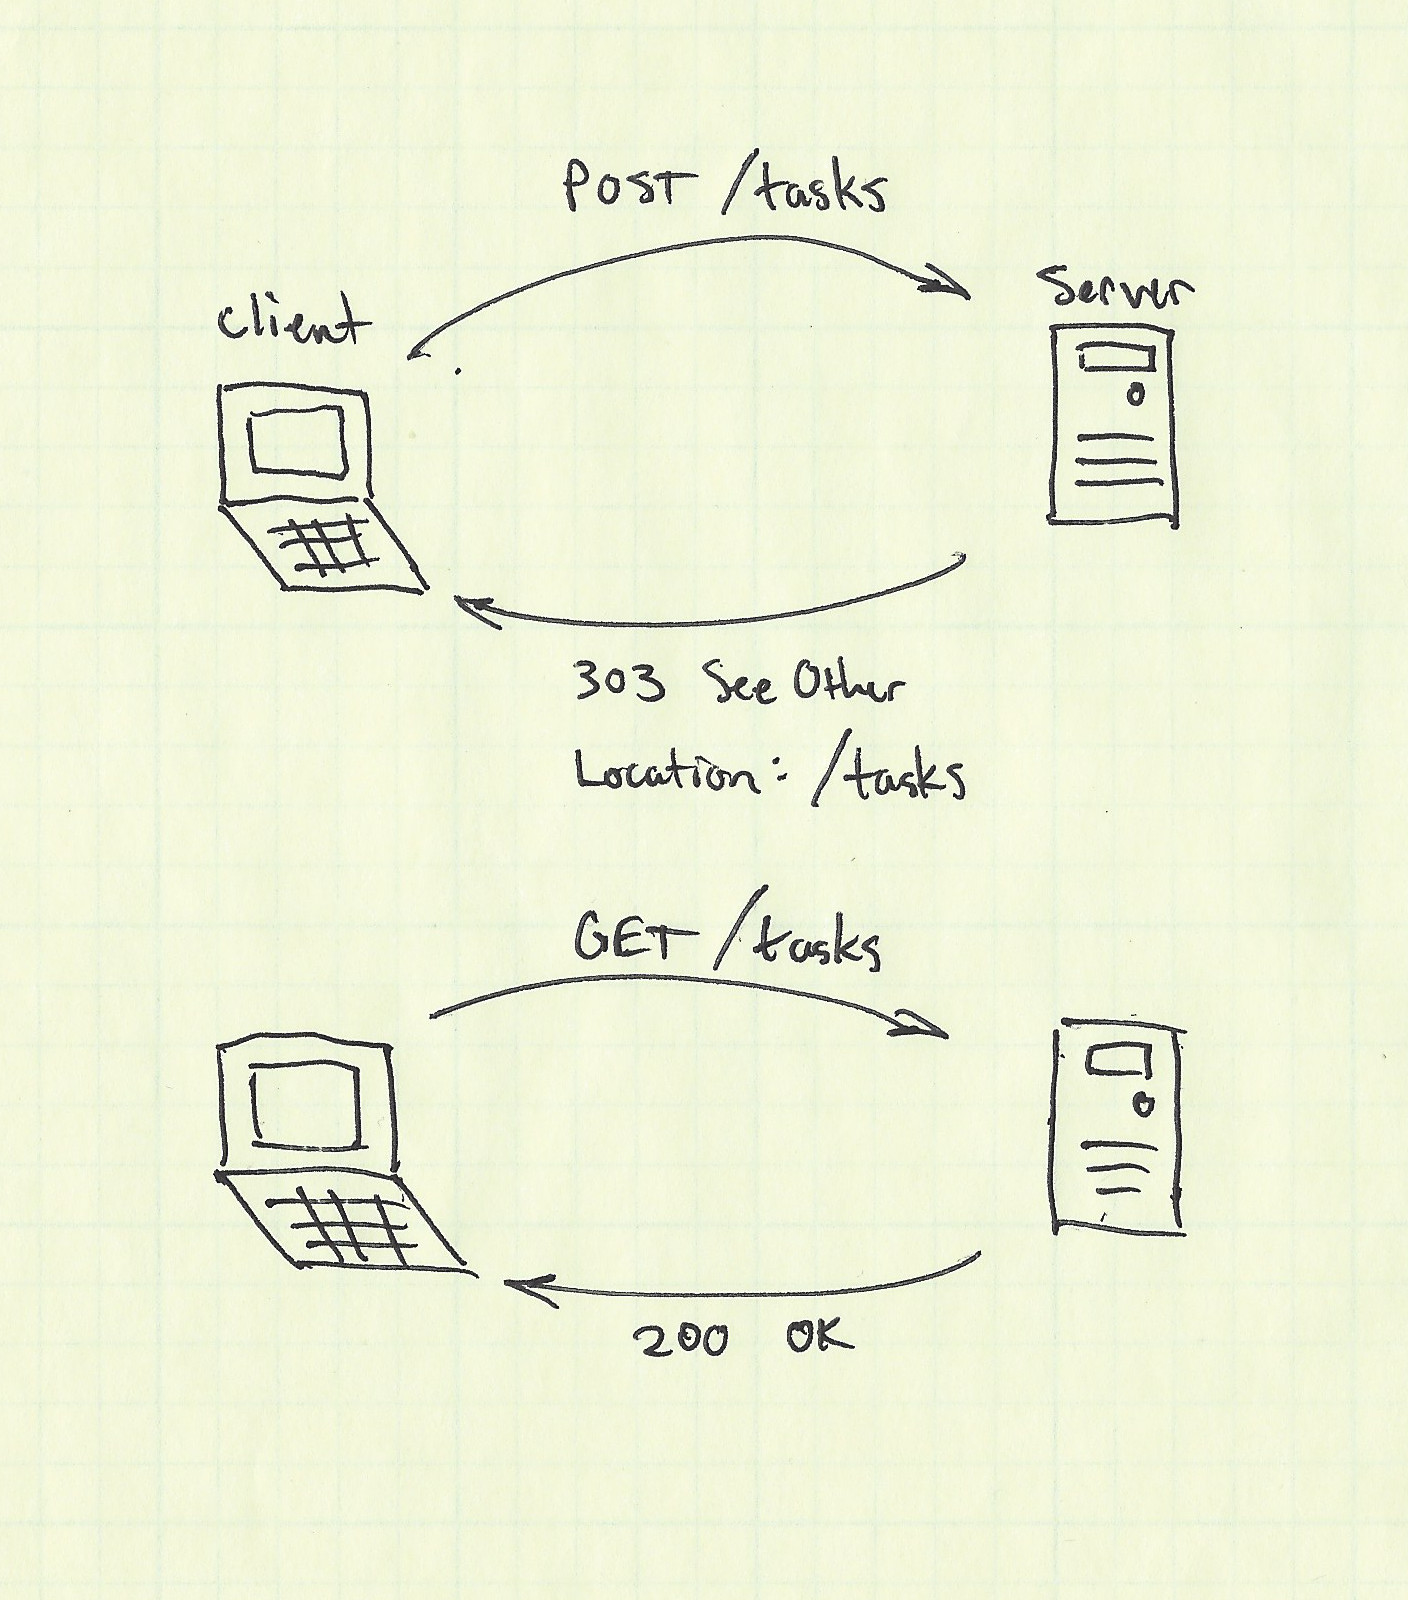 POST /tasks
client
Server
303 See Other
Location: /tasks
GET /tasks
200 OK